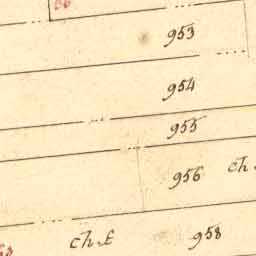 953
954
955
956 ch
ch. E 958